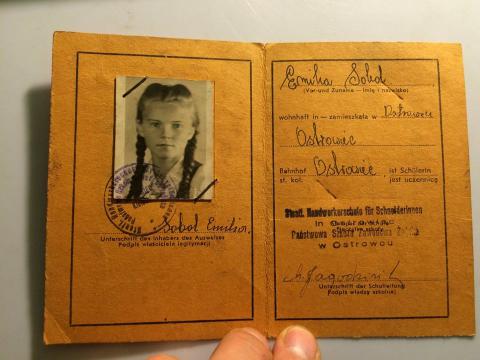 Sobol Emilia
Unterschrift des Inhabers des Ausweises
Podpis właściciela legitymacji
Emilia Sobol
(Vor- und Zuname — Imię i nazwisko)
wohnhaft in — zamieszkała w Ostrowiec
Ostrowiec
Bahnhof Ostrowiec, ist Schülerin
st. kol. jest uczennicą
Staatl. Handwerkerschule für Schneiderinnen
in
Państwowa Szkoła Zawodowa
w Ostrowcu
Unterschrift der Schulleitung
Podpis władzy szkolnej